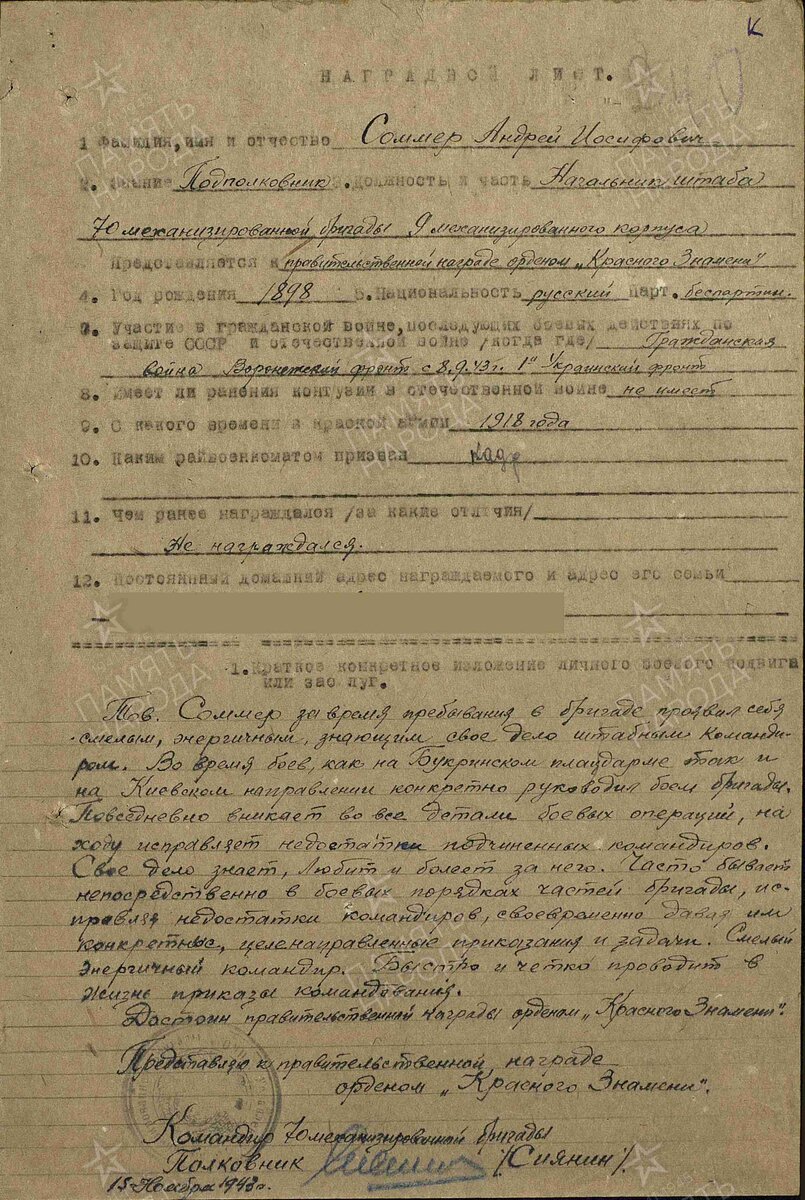 К
НАГРАДНОЙ ЛИСТ.
1 Фамилия, имя и отчество Соммер Андрей Иосифович
2. Звание Подполковник 3. Должность и часть Начальник штаба
70 механизированной бригады 9 механизированного корпуса
Представляется к правительственной награде орденом „Красного Знамени"
4. Год рождения 1898 5. Национальность русский Парт. беспартийн.
7. Участие в гражданской войне, последующих боевых действиях по
защите СССР и отечественной войне /когда где/ Гражданская
война Воронежский фронт с 8.9.43г. 1й Украинский фронт
8. Имеет ли ранения контузии в отечественной войне не имеет
9. С какого времени в красной армии 1918 года
10. Каким райвоенкоматом призван кадр
11. Чем ранее награждался /за какие отличия/
Не награждался.
12. Постоянный домашний адрес награждаемого и адрес его семьи
1. Краткое конкретное изложение личного боевого подвига
или заслуг.
Тов. Соммер за время пребывания в бригаде проявил себя
смелым, энергичным, знающим свое дело штабным команди-
ром. Во время боев, как на Букринском плацдарме так и
на Киевском направлении конкретно руководил боем бригады.
Повседневно вникает во все детали боевых операций, на
ходу исправляет недостатки подчиненных командиров.
Свое дело знает, любит и болеет за него. Часто бывает
непосредственно в боевых порядках частей бригады, ис-
правляя недостатки командиров, своевременно давая им
конкретные, целенаправленные приказания и задачи. Смелый
энергичный командир. Быстро и четко проводит в
жизнь приказы командования.
Достоин правительственной награды орденом „Красного Знамени".
Представляю к правительственной награде
орденом „Красного Знамени".
Командир 70 механизированной бригады
Полковник /Сиянин/
15 Ноября 1943г.
ПАМЯТЬ НАРОДА